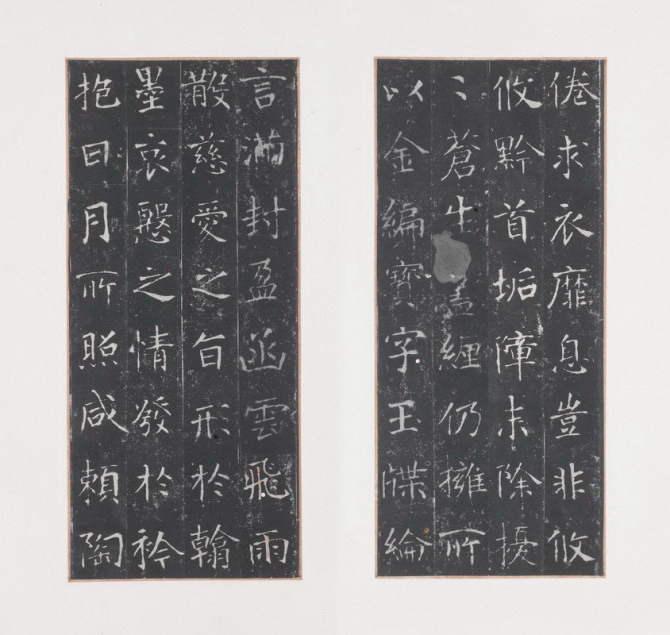 倦求衣靡息豈非攸
攸黔首垢障未除擾
〻蒼生蓋纏仍擁所
以金編寶字玉牒綸
言滿封盈函雲飛雨
散慈愛之旨形於翰
墨哀慇之情發於衿
抱日月所照咸賴陶